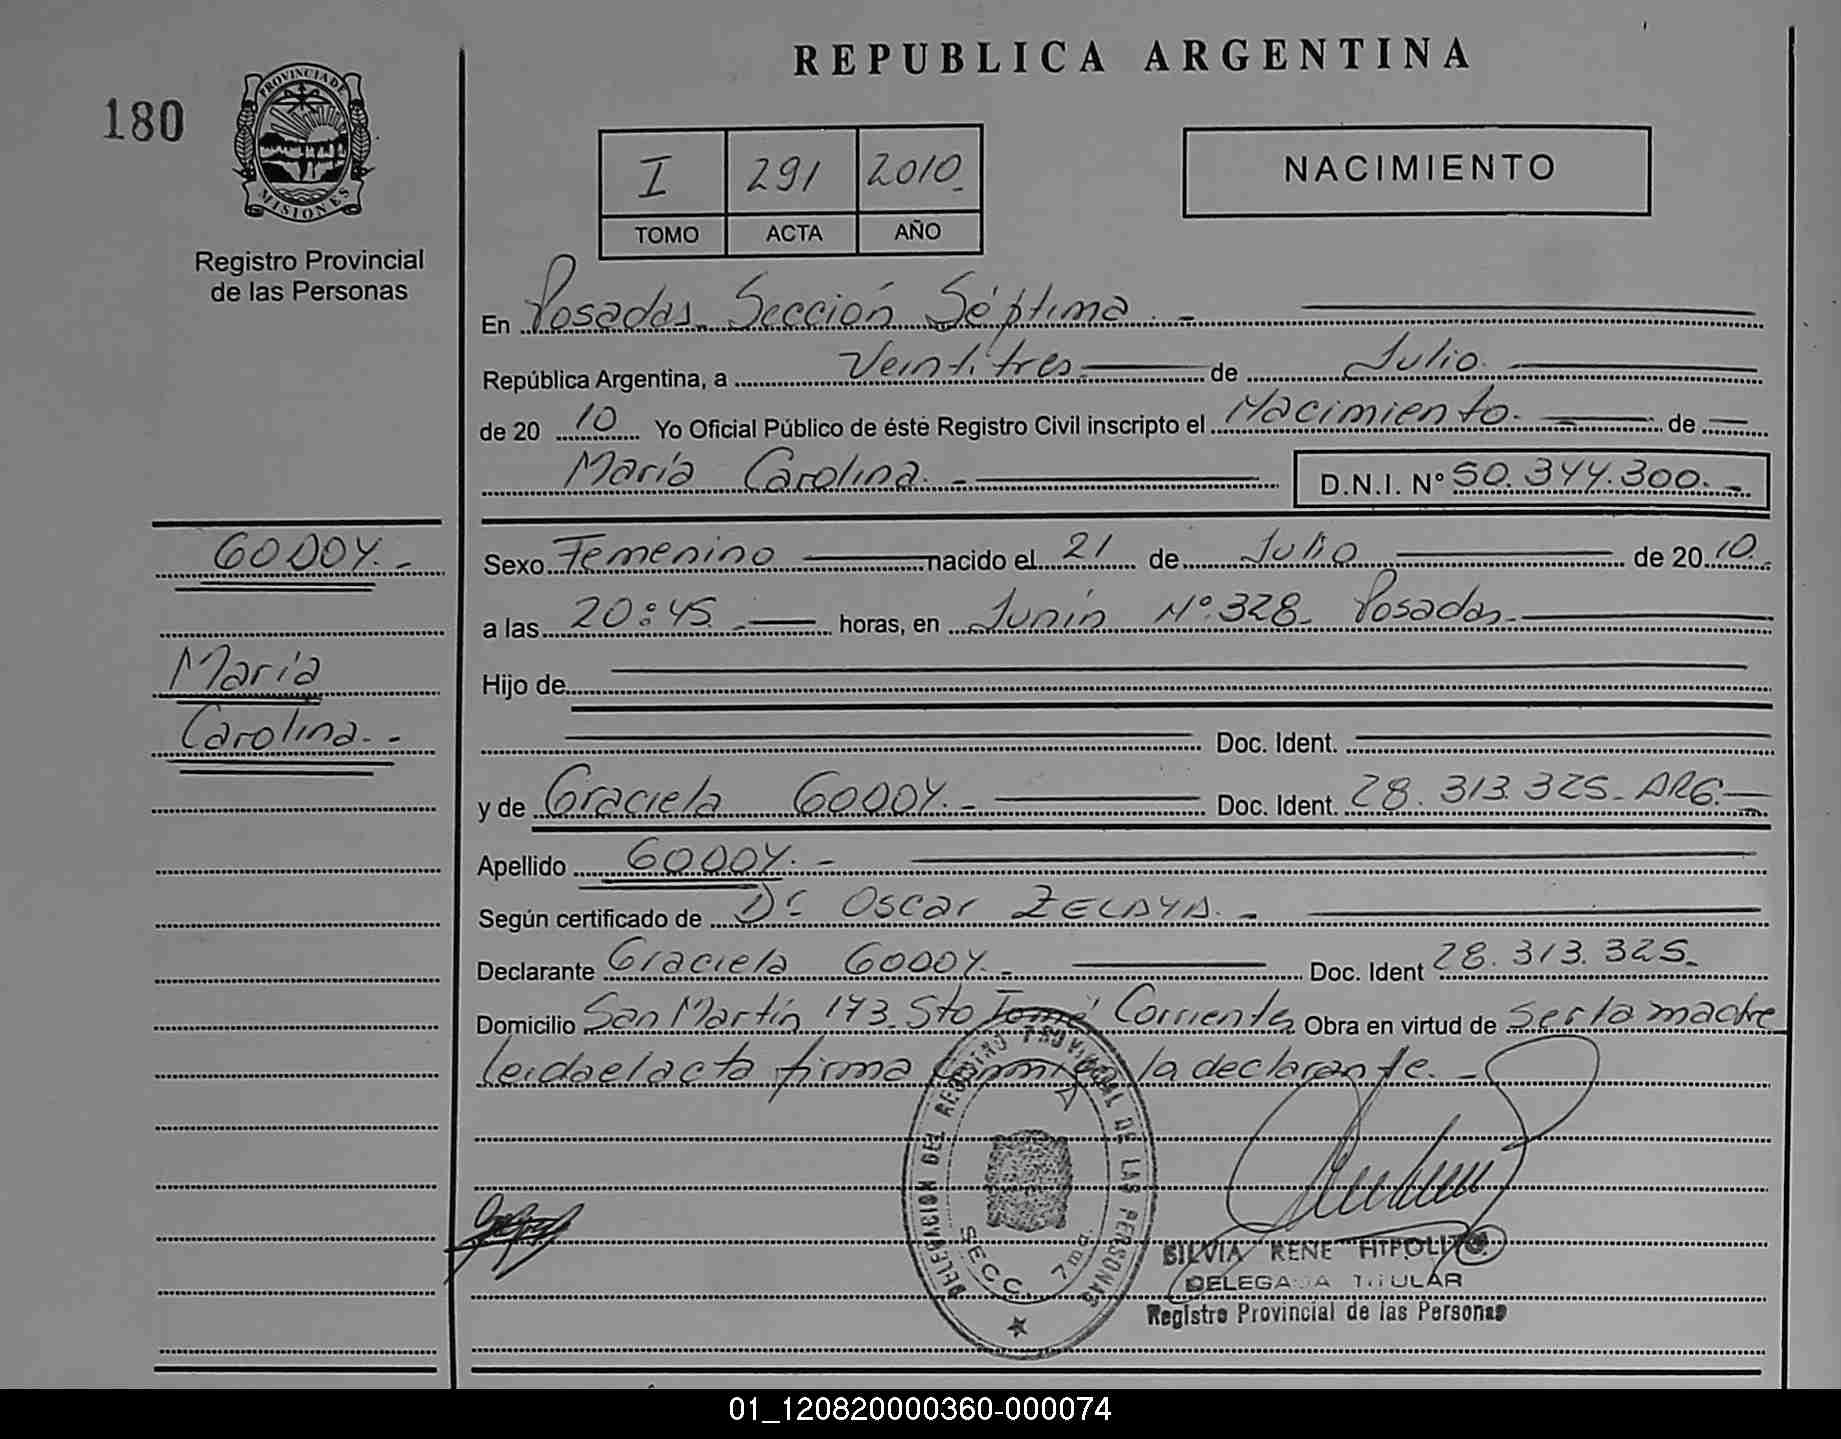 REPUBLICA ARGENTINA
180
PROVINCIA DE
MISIONES
Registro Provincial
de las Personas
I 291 2010
TOMO ACTA AÑO
NACIMIENTO
En Posadas Sección Séptima.-
República Argentina, a Veintitres de Julio.
de 20 10 Yo Oficial Público de éste Registro Civil inscripto el Nacimiento. de
María Carolina.- D.N.I. N° 50.344.300.-
GODOY.-
María
Carolina.-
Sexo Femenino nacido el 21 de Julio de 20 10.
a las 20:45.- horas, en Junín N°.328. Posadas.
Hijo de
Doc. Ident.
y de Graciela GODOY.- Doc. Ident. 28.313.325. ARG.-
Apellido GODOY.-
Según certificado de Dr Oscar ZELAYA.-
Declarante Graciela GODOY.- Doc. Ident 28.313.325.
Domicilio San Martín 173. Sto Tomé Corrientes Obra en virtud de ser la madre
leída el acta firma conmigo la declarante.-
DELEGACION DEL REGISTRO PROVINCIAL DE LAS PERSONAS
SECC. 7ma.
SILVIA RENE HIPOLITO
DELEGADA TITULAR
Registro Provincial de las Personas
01_120820000360-000074